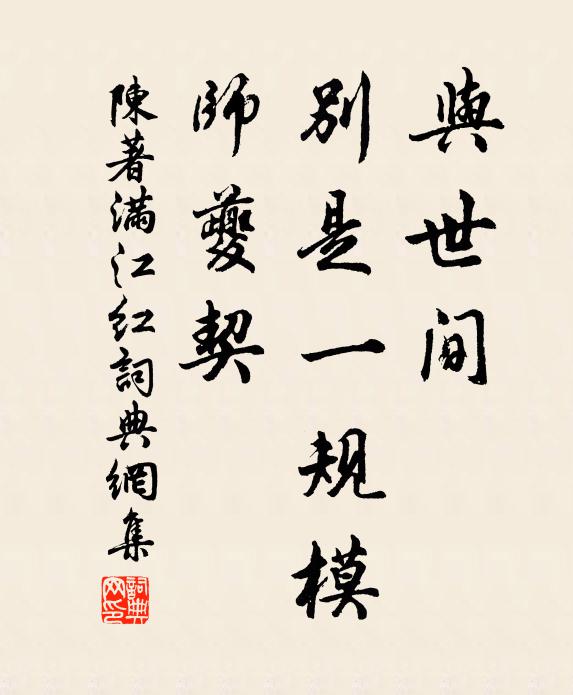 與世間
別是一規模
師夔契
陳著滿江紅詞典網集
詞典網印